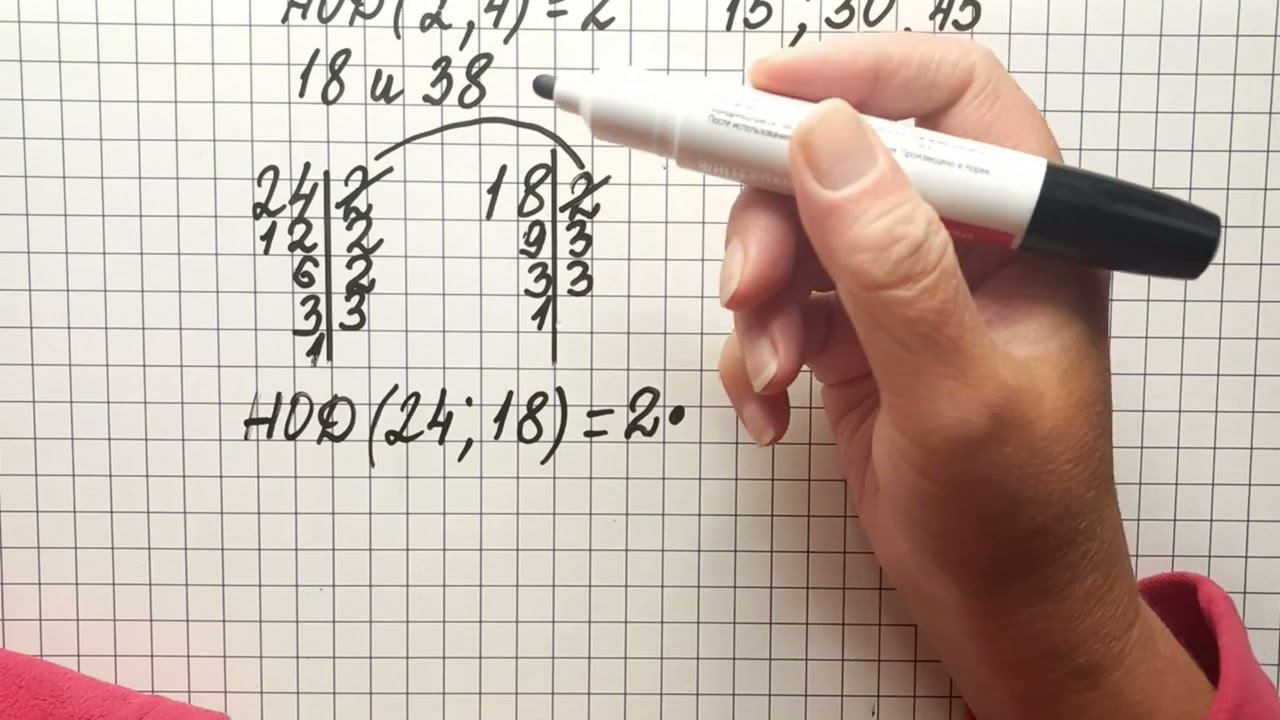 НОД(2,4)=2 15;30.45
18 и 38
24 2 18 2
12 2 9 3
6 2 3 3
3 3 1
1
НОД(24;18)=2•
После использования
Произведено в